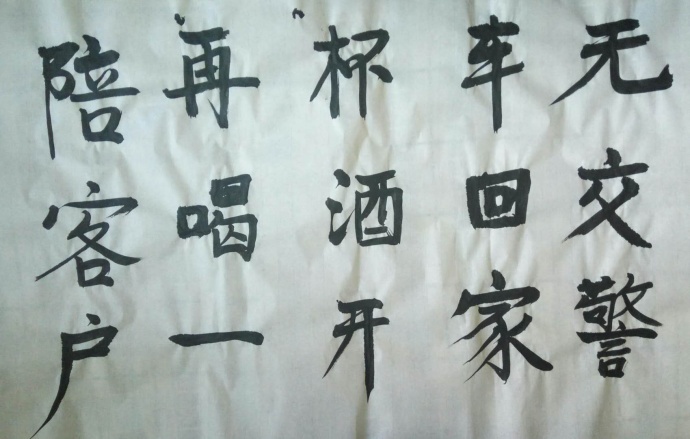 陪客户
"再喝一
"杯酒开
车回家
无交警